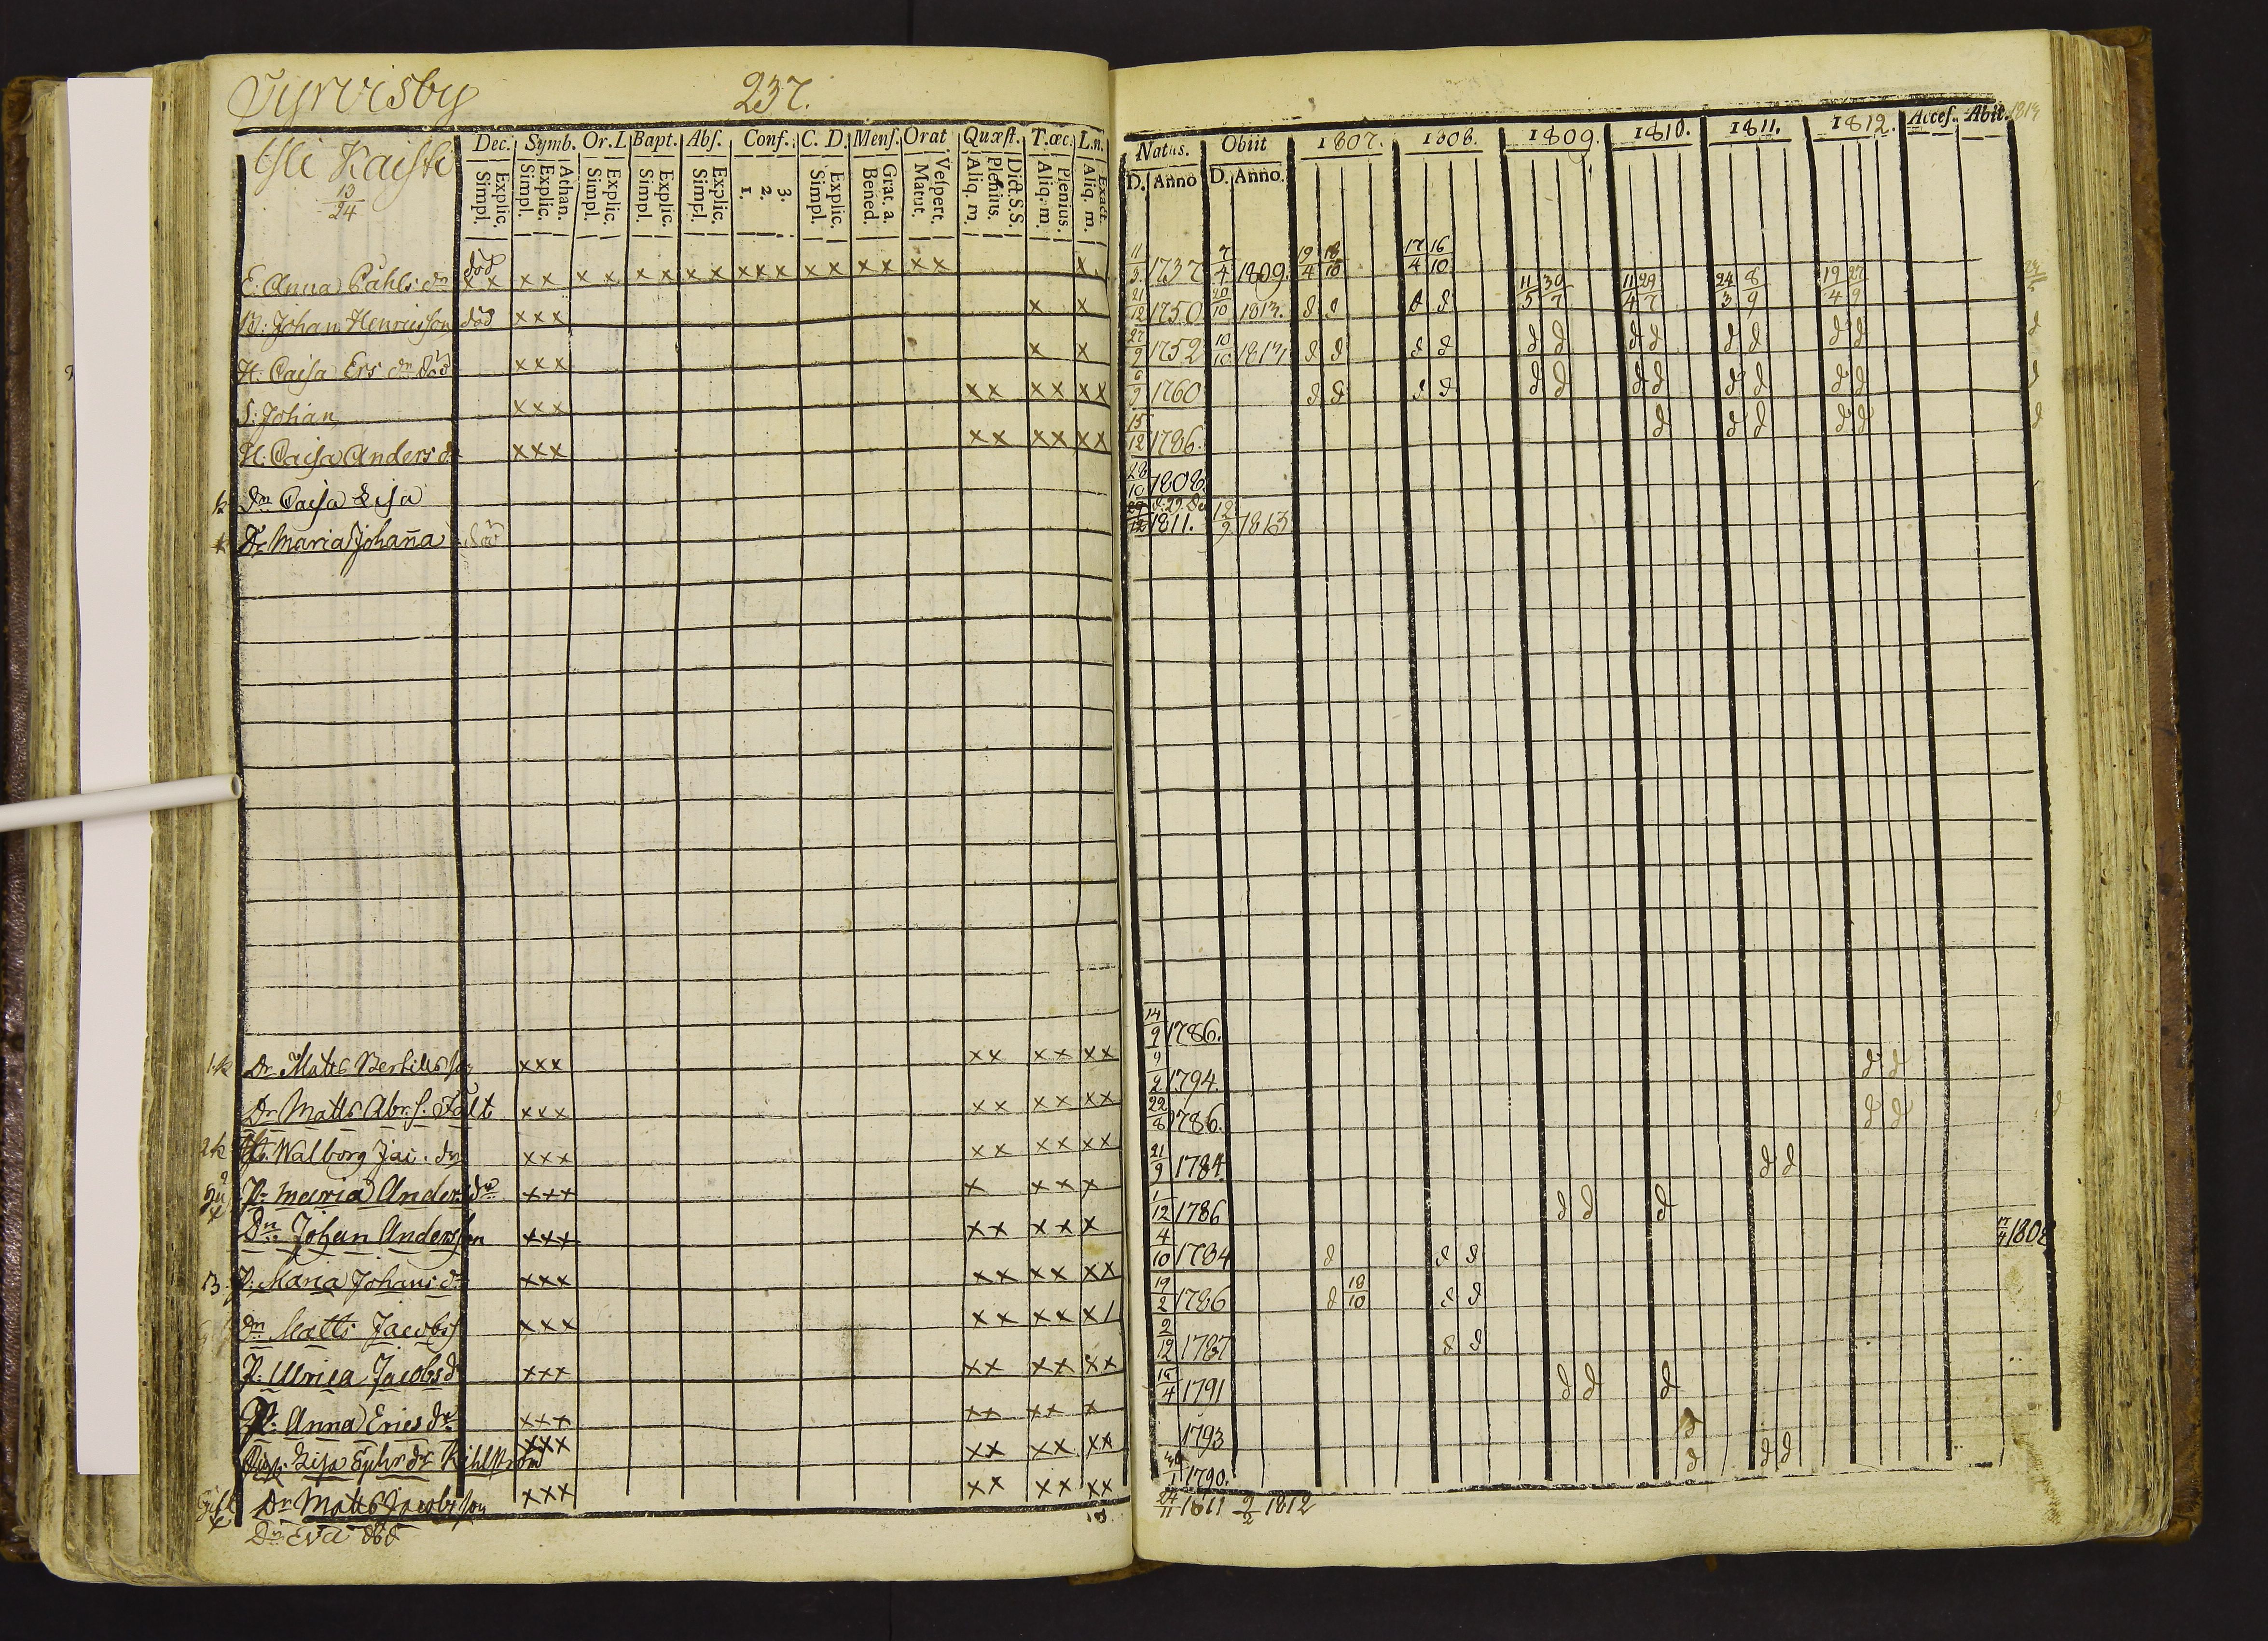 Tyrvisby 237.
Ysli Kaiski 13/24
Dec. Symb. Or. L Bapt. Abs. Conf. C. D. Mens. Orat Quæst. T. œc. L.n.
Explic. Simpl. Athan. Explic. Simpl. Explic. Simpl. Explic. Simpl. Explic. Simpl. 3. 2. 1. Explic. Simpl. Grat. a. Bened. Vespert. Matut. Dict. S.S. Plenius. Aliq. m. Plenius. Aliq. m. Exact. Aliq. m.
Natus. Obiit 1807. 1808. 1809. 1810. 1811. 1812. Acces. Abit.
D. Anno D. Anno.
E. Anna Påhls dr död x x x x x x x x x x x x x x x x x x x x 11/3 1737 7/4 1809. 19/4 18/10 17/4 16/10
B: Johan Henricsson död x x x x x 21/12 1750 20/10 1813. d d d d 11/5 30/7 11/4 29/7 24/3 8/9 19/4 27/9
H. Caisa Ers dr död x x x x x 27/9 1752 10/10 1813 d d d d d d d d d d d d
S: Johan x x x x x x x x x 6/9 1760 d d d d d d d d d d d d
H. Caisa Anders d. x x x x x x x x x 15/12 1786. d d d d d
Dr Caisa Lisa 28/10 1808
Dr Maria Johaña död 1811. 12/9 1813
Dr Matts Bertilsson x x x x x x x x x 14/9 1786.
Dr Matts Abr. s. Fält x x x x x x x x x 9/2 1794. d d
Walborg Jac. dr x x x x x x x x x 22/8 1786. d d
P. Maria Anders dr x x x x x x x 21/9 1784. d d
Dr Johan Andersson x x x x x x x x 1/12 1786 d d d
P: Maria Johans d. x x x x x x x x x 4/10 1784 d d d 1808
Dr Matts Jacobs x x x x x x x x x 19/2 1786 d 18/10 d d
P. Ulrica Jacobs d x x x x x x x x x 2/12 1787 d d
P. Anna Erics dr x x x x x x x x 15/4 1791 d d d
Lisa Ephr dr Kihlström x x x x x x x x x 1793 d
Dr Matts Jacobsson x x x x x x x x x 1790. d d d
Dr Eva död 24/11 1811 9/2 1812